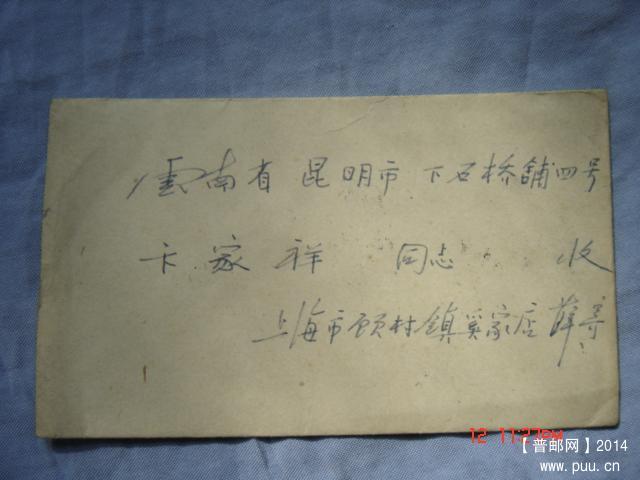 雲南省 昆明市 下石桥舖四号
卞家祥 同志 收
上海市顾村镇奚家店 薛寄
12 11:27PM
【普邮网】2014
www.puu.cn